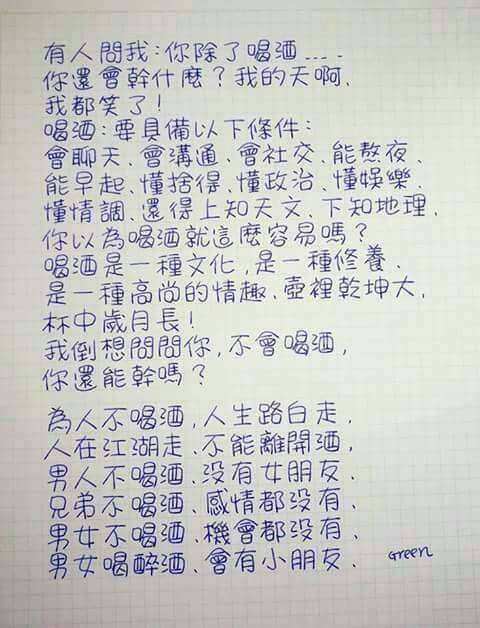 有人問我:你除了喝酒....
你還會幹什麼?我的天啊、
我都笑了!
喝酒:要具備以下條件:
會聊天、會溝通、會社交、能熬夜、
能早起、懂捨得、懂政治、懂娛樂、
懂情調、還得上知天文、下知地理、
你以為喝酒就這麼容易嗎?
喝酒是一種文化,是一種修養、
是一種高尚的情趣、壺裡乾坤大,
杯中歲月長!
我倒想問問你,不會喝酒,
你還能幹嗎?
為人不喝酒,人生路白走、
人在江湖走、不能離開酒,
男人不喝酒、没有女朋友、
兄弟不喝酒、感情都没有、
男女不喝酒、機會都没有、
男女喝醉酒、會有小朋友、 Green